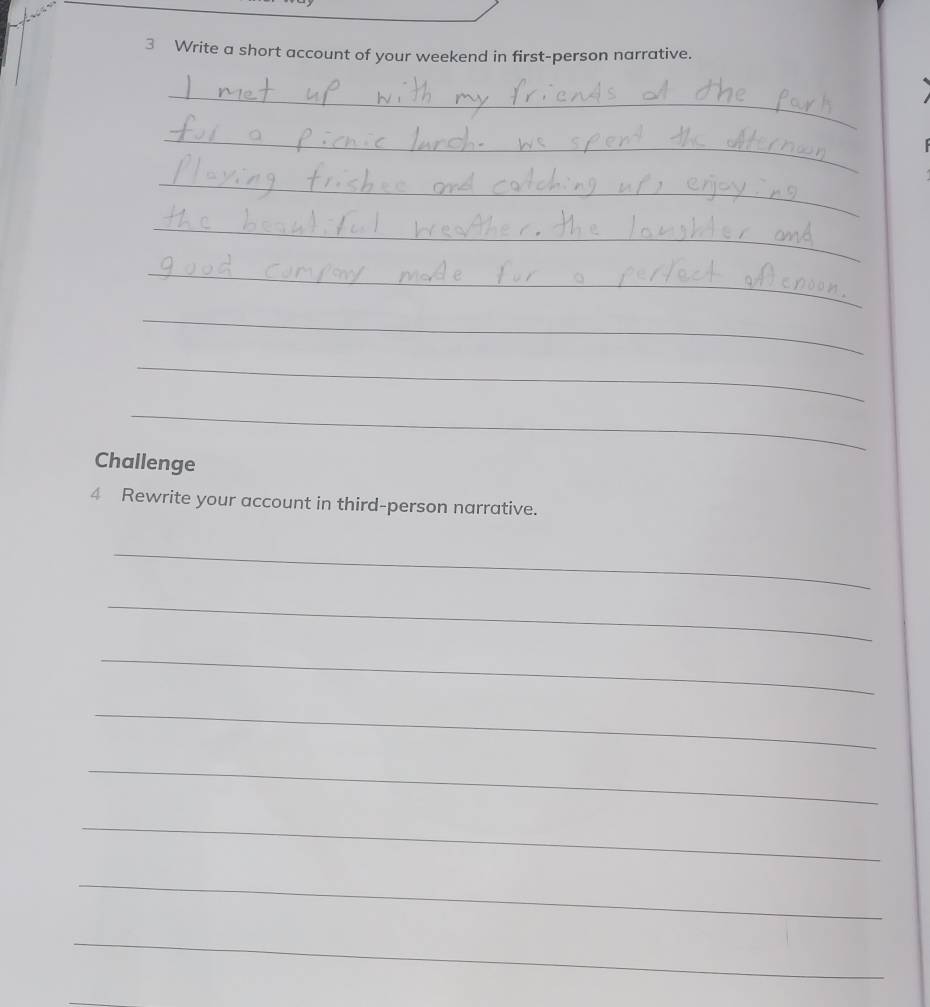 3 Write a short account of your weekend in first-person narrative.
I met up with my friends at the Park
for a Picnic lunch. we spent the afternoon
Playing frisbee and catching up, enjoying
the beautiful weather. the laughter and
good company made for a perfect afternoon.
Challenge
4 Rewrite your account in third-person narrative.